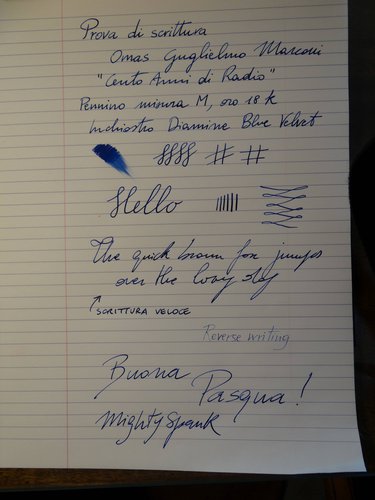 Prova di scrittura
Omas Guglielmo Marconi
"Cento Anni di Radio"
Pennino misura M, oro 18 K
Inchiostro Diamine Blue Velvet
ffff # #
Hello
The quick brown fox jumps
over the lazy dog
↑ SCRITTURA VELOCE
Reverse writing
Buona
Pasqua!
MightySpank